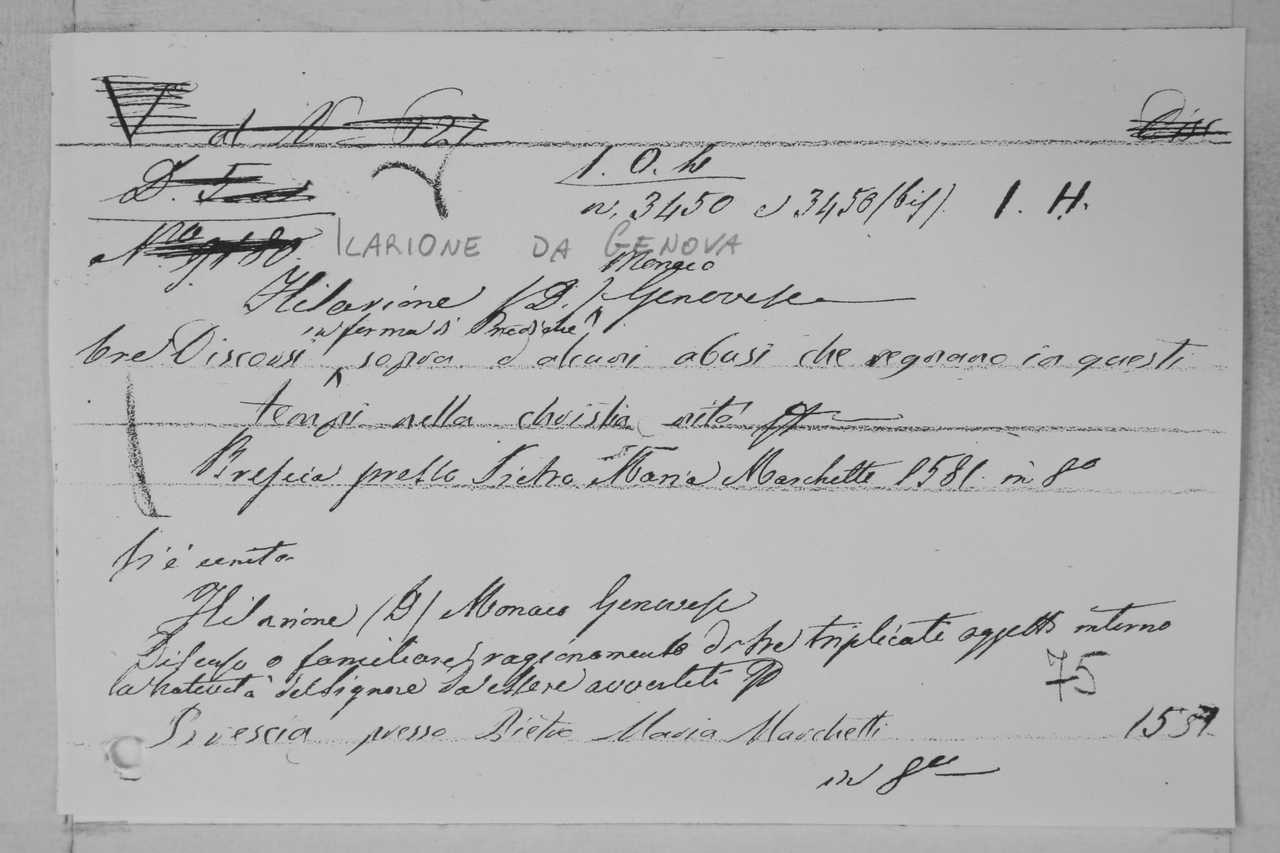 V al N° 127
Dis
D. 
1. O. h
n. 3450 e 3450 (bis) I. H.
N.ro 9180.
ILARIONE DA GENOVA
Monaco
Hilarione (D.) Genovese
in forma di Prediche
tre Discorsi sopra d'alcuni abusi che regnano in questi
tempi nella christianità
Brescia presso Pietro Maria Marchetti 1581. in 8°
Vi è unito
Hilarione (D) Monaco Genovese
Discorso o familiare ragionamento di tre triplicati oggetti intorno
la natività del Signore da essere avvertiti
75
Brescia presso Pietro Maria Marchetti 1581
in 8vo